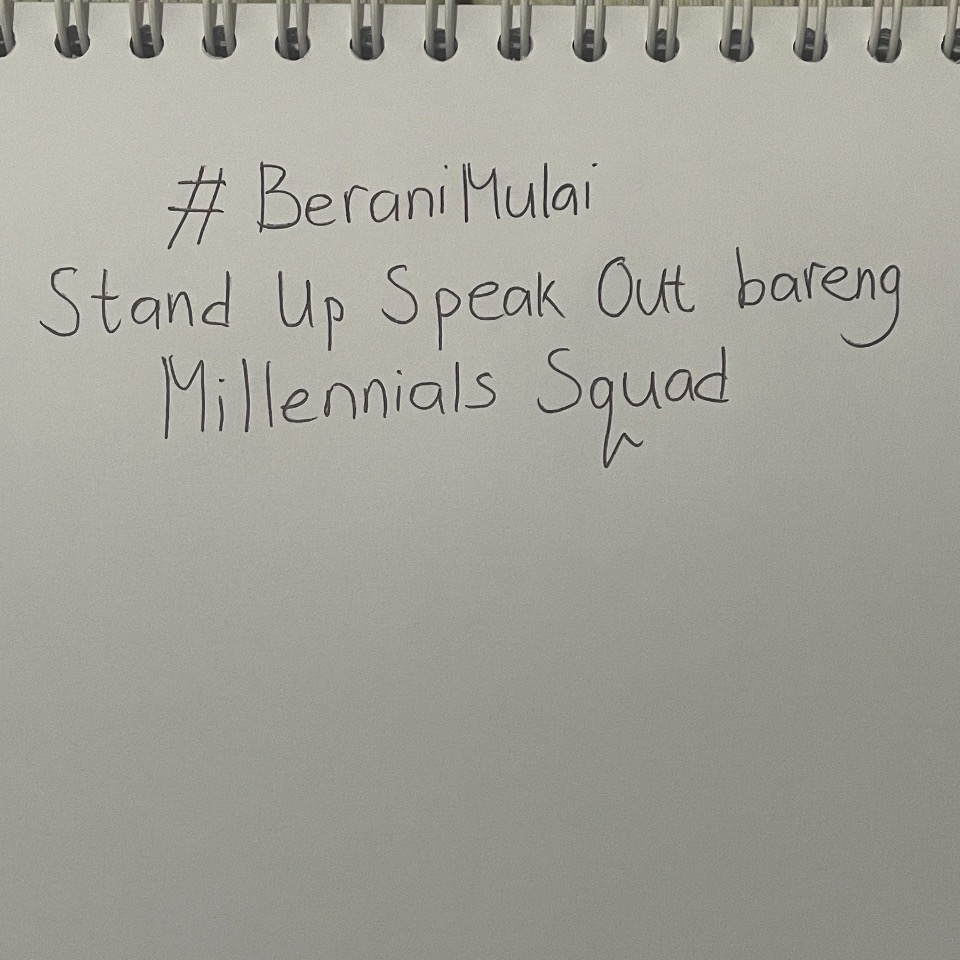 #BeraniMulai
Stand Up Speak Out bareng
Millennials Squad